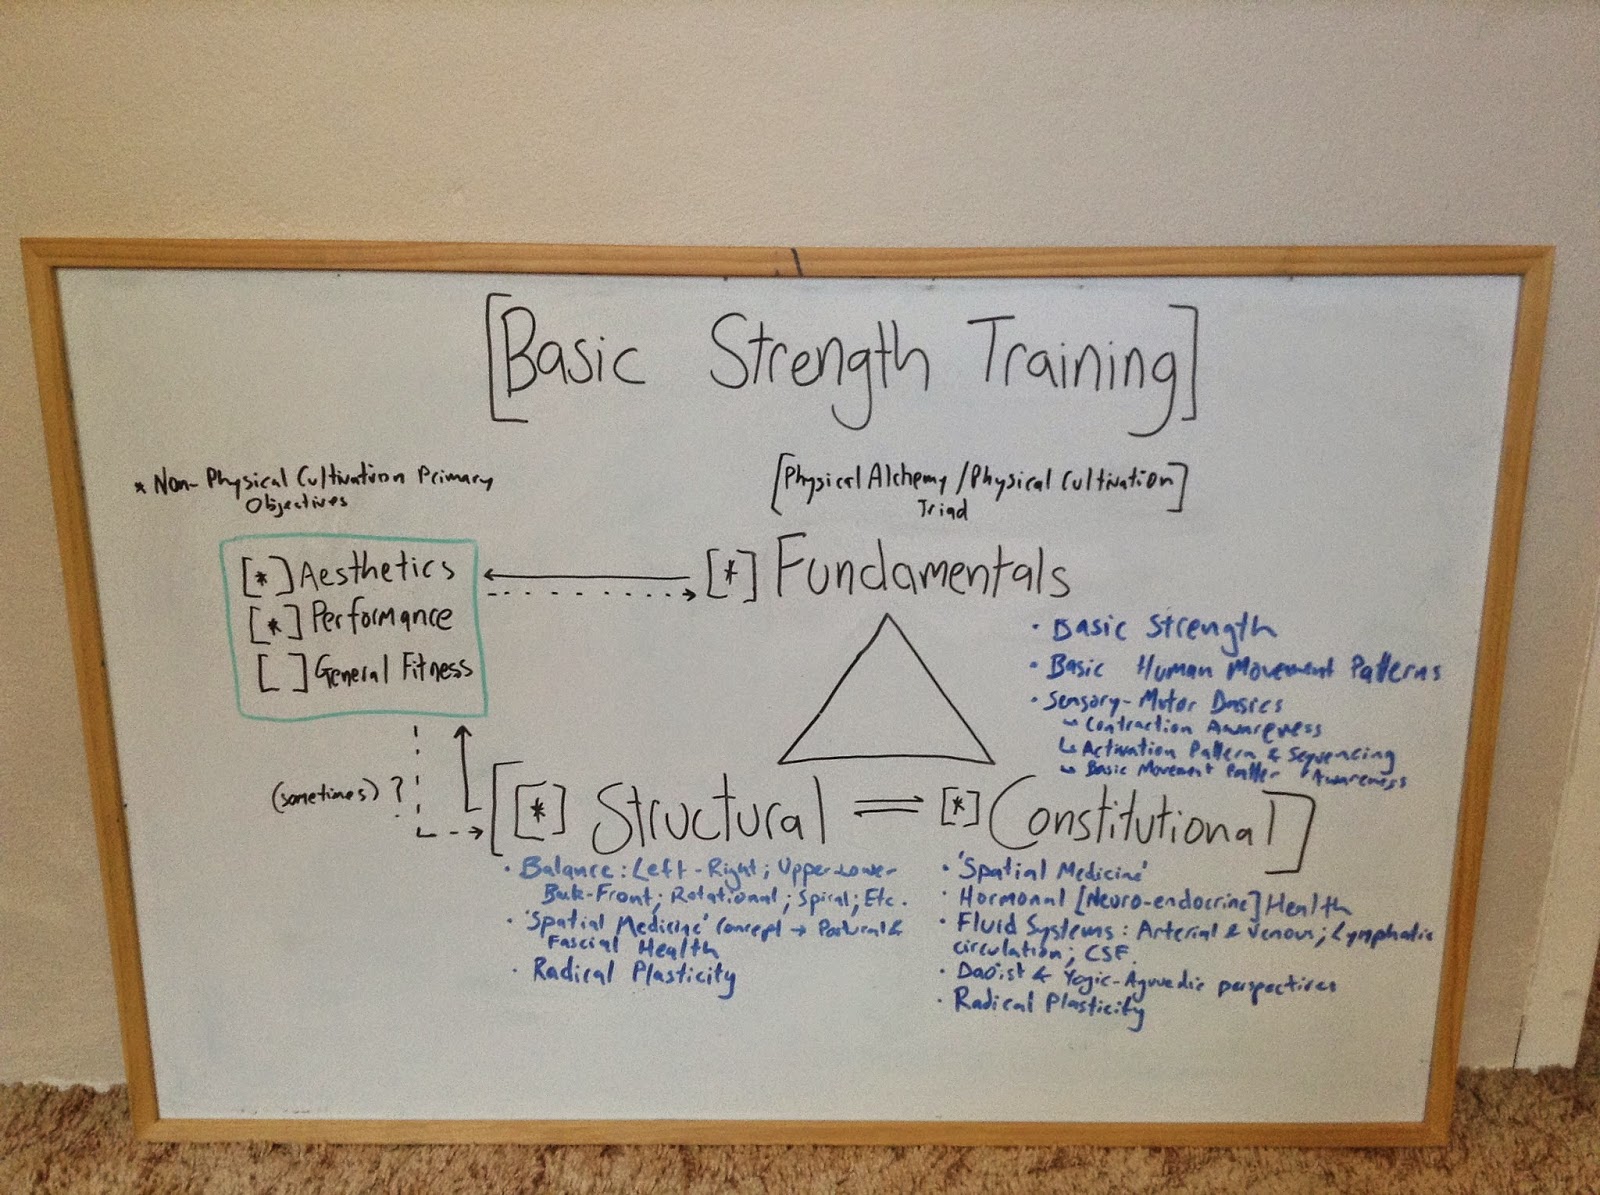 [Basic Strength Training]
* Non-Physical Cultivation Primary
Objectives
[*] Aesthetics
[*] Performance
[ ] General Fitness
(sometimes) ?
[Physical Alchemy/Physical Cultivation]
Triad
[*] Fundamentals
• Basic Strength
• Basic Human Movement Patterns
• Sensory-Motor Basics
↳ Contraction Awareness
↳ Activation Pattern & Sequencing
↳ Basic Movement Patter Awareness
[[*] Structural = [*] Constitutional]
• Balance: Left-Right; Upper-Lower
Back-Front; Rotational; Spiral; Etc.
• 'Spatial Medicine' Concept → Postural &
Fascial Health
• Radical Plasticity
• 'Spatial Medicine'
• Hormonal [Neuro-endocrine] Health
• Fluid Systems: Arterial & Venous; Lymphatic
circulation; CSF.
• Daoist & Yogic-Ayuvedic perspectives
• Radical Plasticity